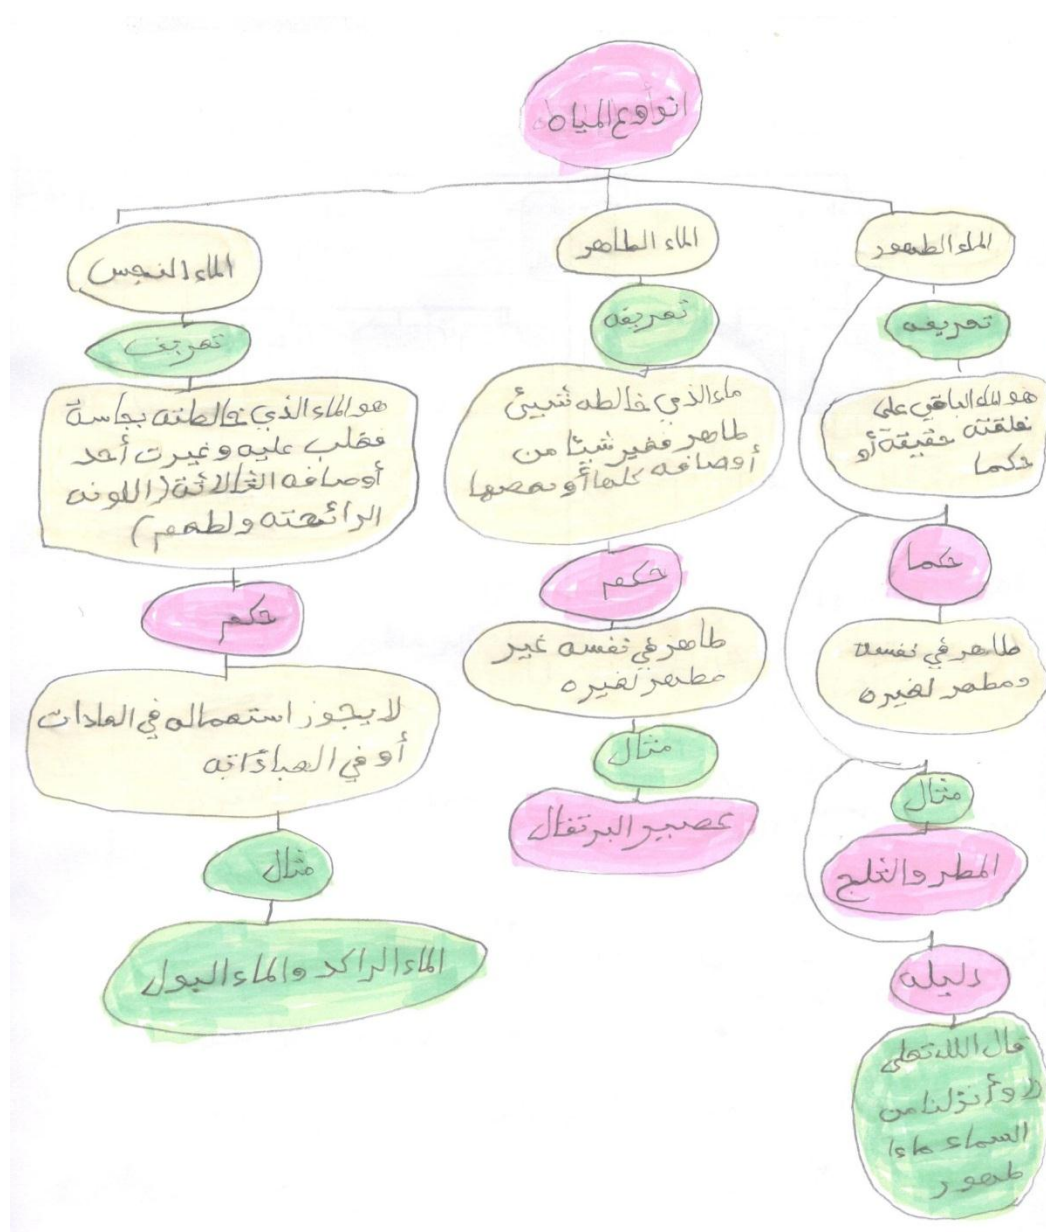 انواوع المياه
الماء الطهور
تعريفه
هو الماء الباقي على
خلقته حقيقة أو
حكما
حكما
طاهر في نفسه
ومطهر لغيره
مثال
المطر والثلج
دليله
قال الله تعلى
((وأنزلنا من
السماء ماءا
طهور
الماء الطاهر
تعريفه
ماء الذي خالطه شيئ
طاهر فغير شيئا من
أوصافه كلها أو بعضها
حكم
طاهر في نفسه غير
مطهر لغيره
مثال
عصير البرتقال
الماء النجس
تعريف
هو الماء الذي خالطته بجاسة
فغلب عليه وغيرت أحد
أوصافه الثلاثة (اللونه
الرائحته ولطعم)
حكم
لا يجوز استعماله في العادات
أو في العباداته
مثال
الماء الراكد والماء البول